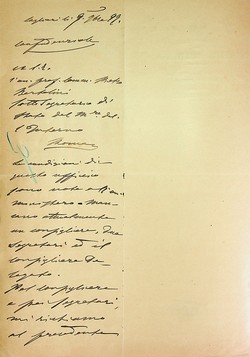 Cagliari li 9. 
Confidenziale
a S. E.
l'on. prof. comm. Pietro
Bertolini
Sottosegretario di
Stato del M.ro del
l'Interno
Roma
Le condizioni di
questo ufficio
sono note a
ministero
cano attualmente
un consigliere, due
segretari ed il
consigliere de
legato.
Pel consigliere
e pei segretari,
mi richiamo
al precedente